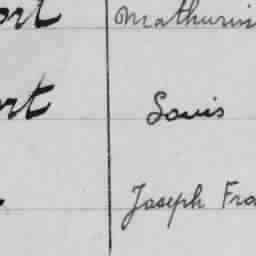 ort Mathurin
rt Louis
Joseph Fra